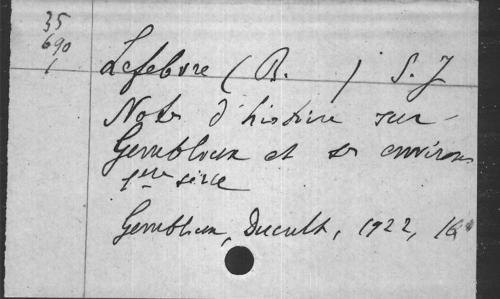 35
690
1
Lefebvre (R. ) S. J
Notes d'histoire sur
Gembloux et ses environs
1ère série
Gembloux, Duculot, 1922, 16°